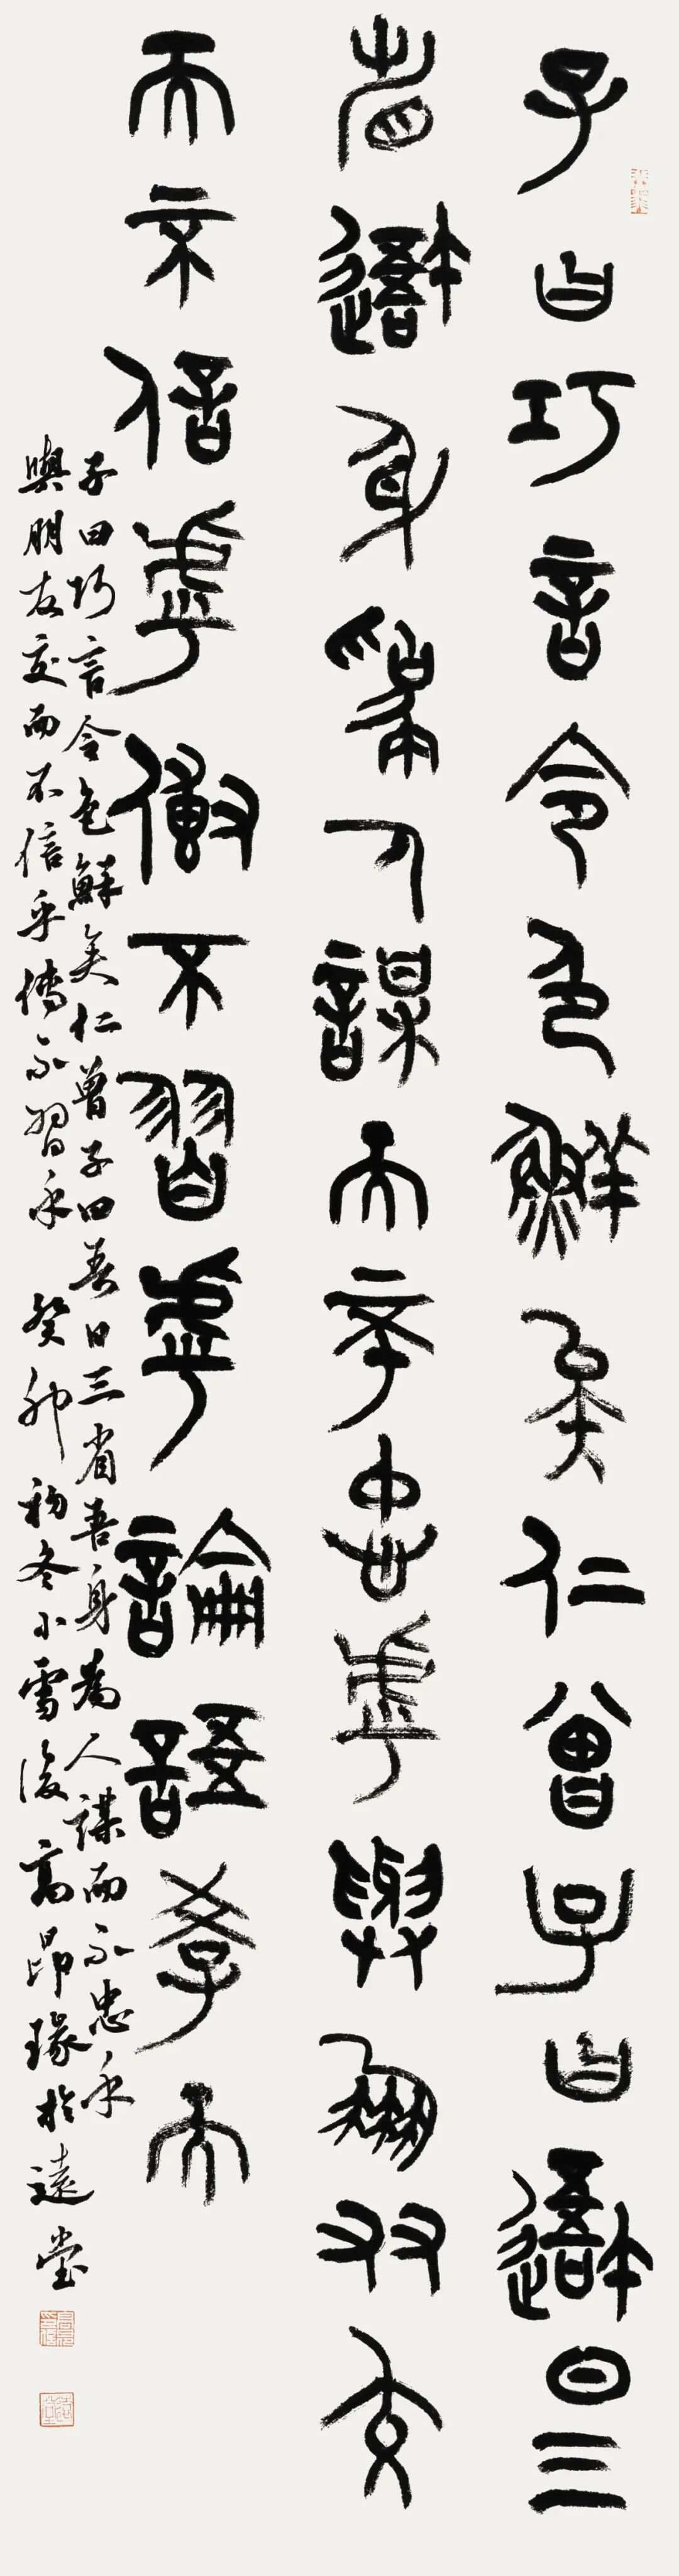 子曰巧言令色鮮矣仁曾子曰吾日三
省吾身為人謀而不忠乎與朋友交
而不信乎傳不習乎論語學而
子曰巧言令色鮮矣仁曾子曰吾日三省吾身為人謀而不忠乎
與朋友交而不信乎傳不習乎 癸卯初冬小雪後高昂瑑於遠堂